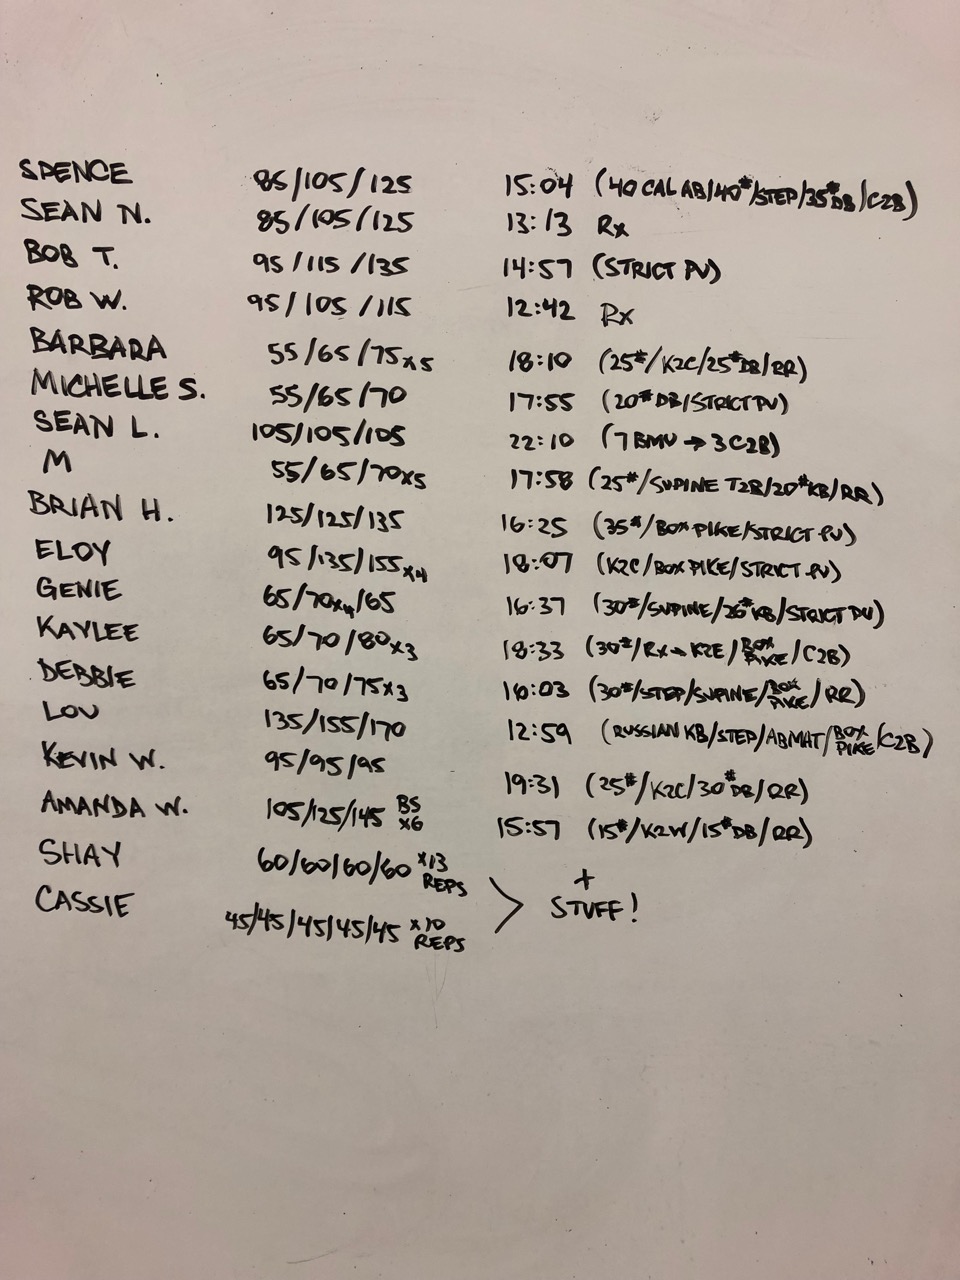 SPENCE 85/105/125 15:04 (40 CAL AB/40#/STEP/35#DB/C2B)
SEAN N. 85/105/125 13:13 Rx
BOB T. 95/115/135 14:57 (STRICT PU)
ROB W. 95/105/115 12:42 Rx
BARBARA 55/65/75x5 18:10 (25#/K2C/25#DB/RR)
MICHELLE S. 55/65/70 17:55 (20#DB/STRICT PU)
SEAN L. 105/105/105 22:10 (7 BMU → 3 C2B)
M 55/65/70x5 17:58 (25#/SUPINE T2B/20#KB/RR)
BRIAN H. 125/125/135 16:25 (35#/BOX PIKE/STRICT PU)
ELOY 95/135/155x4 18:07 (K2C/BOX PIKE/STRICT PU)
GENIE 65/70x4/65 16:37 (30#/SUPINE/26#KB/STRICT PU)
KAYLEE 65/70/80x3 18:33 (30#/Rx→K2E/BOX PIKE/C2B)
DEBBIE 65/70/75x3 16:03 (30#/STEP/SUPINE/BOX PIKE/RR)
LOU 135/155/170 12:59 (RUSSIAN KB/STEP/ABMAT/BOX PIKE/C2B)
KEVIN W. 95/95/95 19:31 (25#/K2C/30#DB/RR)
AMANDA W. 105/125/145 BS x6 15:57 (15#/K2W/15#DB/RR)
SHAY 60/60/60/60 x13 REPS
CASSIE 45/45/45/45/45 x10 REPS > + STUFF!